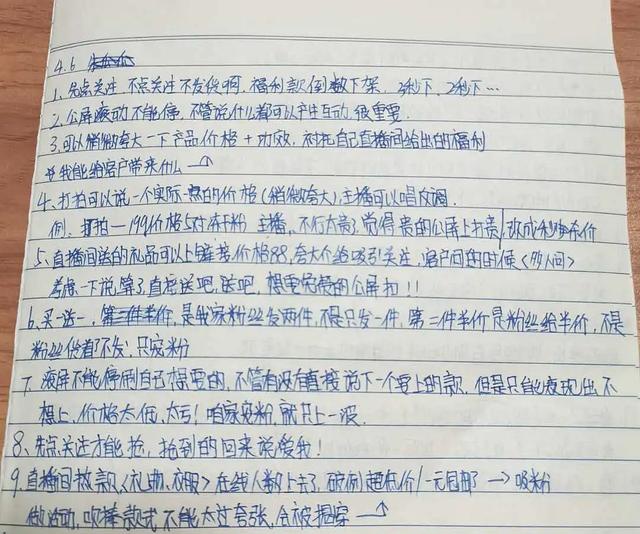 4.6
1、先点关注 不点关注不发货啊,福利款倒数下架,3秒下,2秒下…
2、公屏滚动不能停,不管说什么都可以产生互动,很重要.
3、可以稍微夸大一下产品价格+功效,衬托自己直播间给出的福利
我能给客户带来什么
4、打拍可以说一个实际一点的价格(稍微夸大),主播可以唱反调.
例. 打拍一199价格5对本千粉 主播,不行太贵了,觉得贵的公屏上打贵,改成秒杀价
5、直播间送的礼品可以上链接,价格88,夸大价格吸引关注,客户问的时候<多人问>
考虑一下说,算了,直接送吧,送吧,想要免费的公屏扣!!
6、买一送一,第二件半价,是我家粉丝发两件,不是只发一件,第二件半价是粉丝给半价,不是
粉丝价都不发!只宠粉
7、滚屏不能停,倒自己想要的,不管有没有直接说下一个要上的款,但是只能表现出不
想上,价格太低,太亏!咱家宠粉,就只上一波.
8、先点关注才能抢,抢到的回来说爱我!
9.直播间放款,<礼物、衣服>在线人数上去了,破例超低价/一元包邮 → 吸粉
做活动,吹捧款式,不能太过夸张,会被揭穿